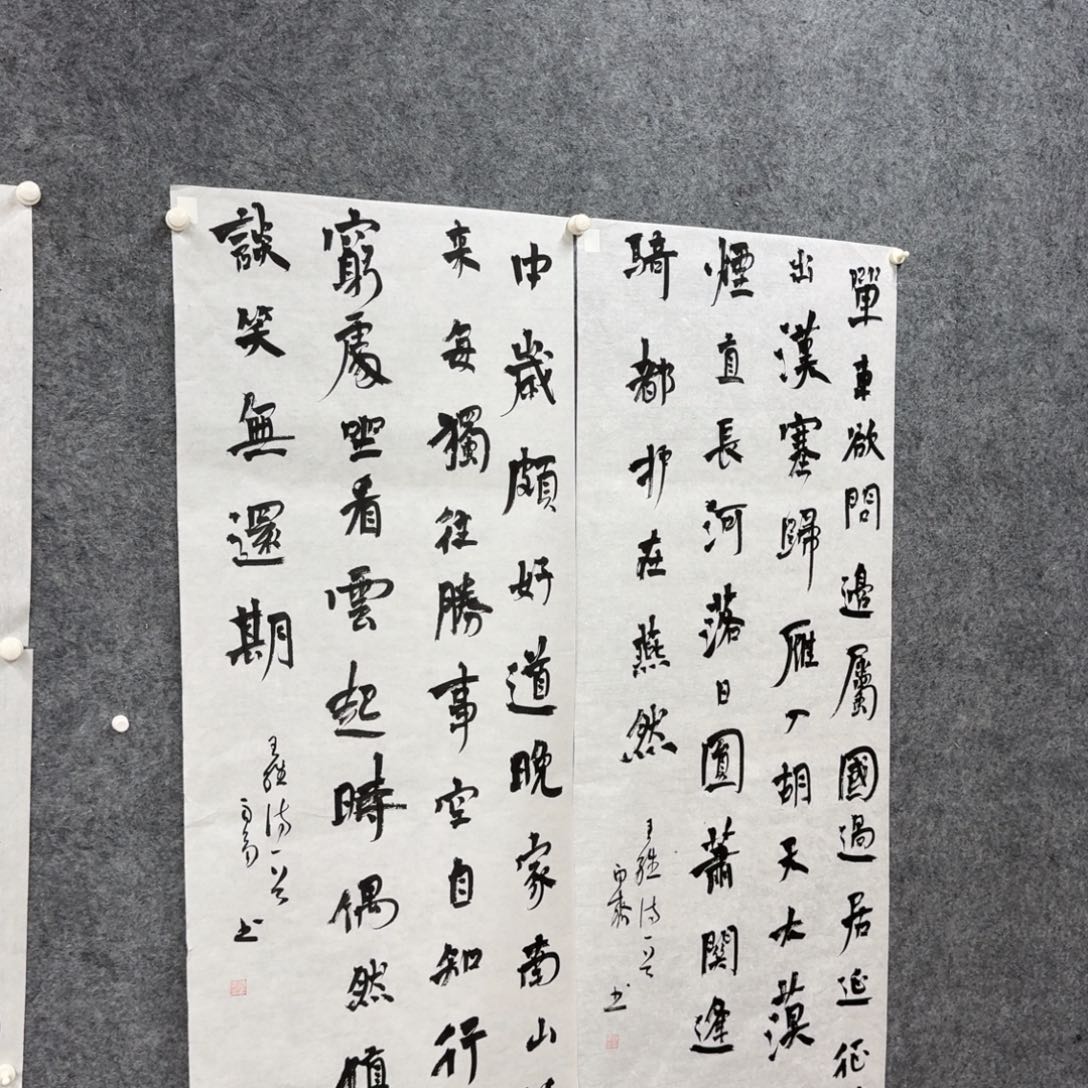 單車欲問邊屬國過居延征
出漢塞歸雁入胡天大漠
煙直長河落日圓蕭關逢
騎都护在燕然
王維诗一首
书
中歲頗好道晚家南山
来每獨往勝事空自知行
窮處坐看雲起時偶然值
談笑無還期
王維诗一首
书